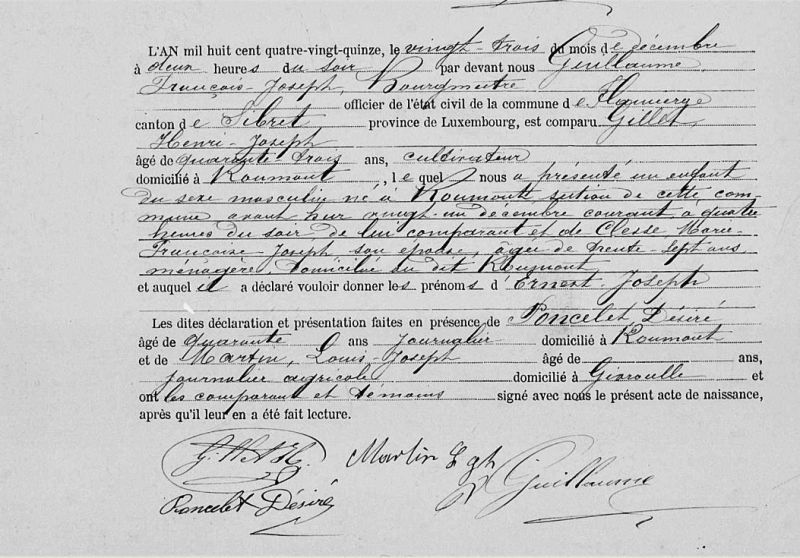 L'AN mil huit cent quatre-vingt-quinze, le vingt-trois du mois de décembre
à deux heures du soir par devant nous Guillaume
François-Joseph, Bourgmestre
officier de l'état civil de la commune de Flamierge
canton de Sibret province de Luxembourg, est comparu Gillet,
Henri-Joseph
âgé de quarante trois ans, cultivateur
domicilié à Roumont, lequel nous a présenté un enfant
du sexe masculin né à Roumont section de cette com-
mune avant hier vingt-un décembre courant à quatre
heures du soir de lui comparant et de Clesse Marie-
Françoise-Joseph son épouse, âgée de trente-sept ans
ménagère, domiciliée au dit Roumont
et auquel il a déclaré vouloir donner les prénoms d'Ernest Joseph
Les dites déclaration et présentation faites en présence de Poncelet Désiré
âgé de quarante ans journalier domicilié à Roumont
et de Martin, Louis-Joseph âgé de ans,
journalier agricole domicilié à Givroulle et
ont les comparant et témoins signé avec nous le présent acte de naissance,
après qu'il leur en a été fait lecture.
Martin L Guillaume
Poncelet Désiré